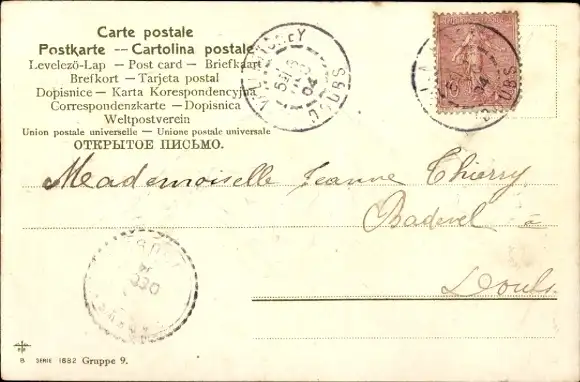 Carte postale
Postkarte -- Cartolina postale
Levelezö-Lap — Post card — Briefkaart
Brefkort — Tarjeta postal
Dopisnice — Karta Korespondencyjna
Correspondenzkarte — Dopisnica
Weltpostverein
Union postale universelle — Unione postale universale
ОТКРЫТОЕ ПИСЬМО.
04
DOUBS
Mademoiselle Jeanne Thierry
Badevel à
Doubs.
B SERIE 1682 Gruppe 9.